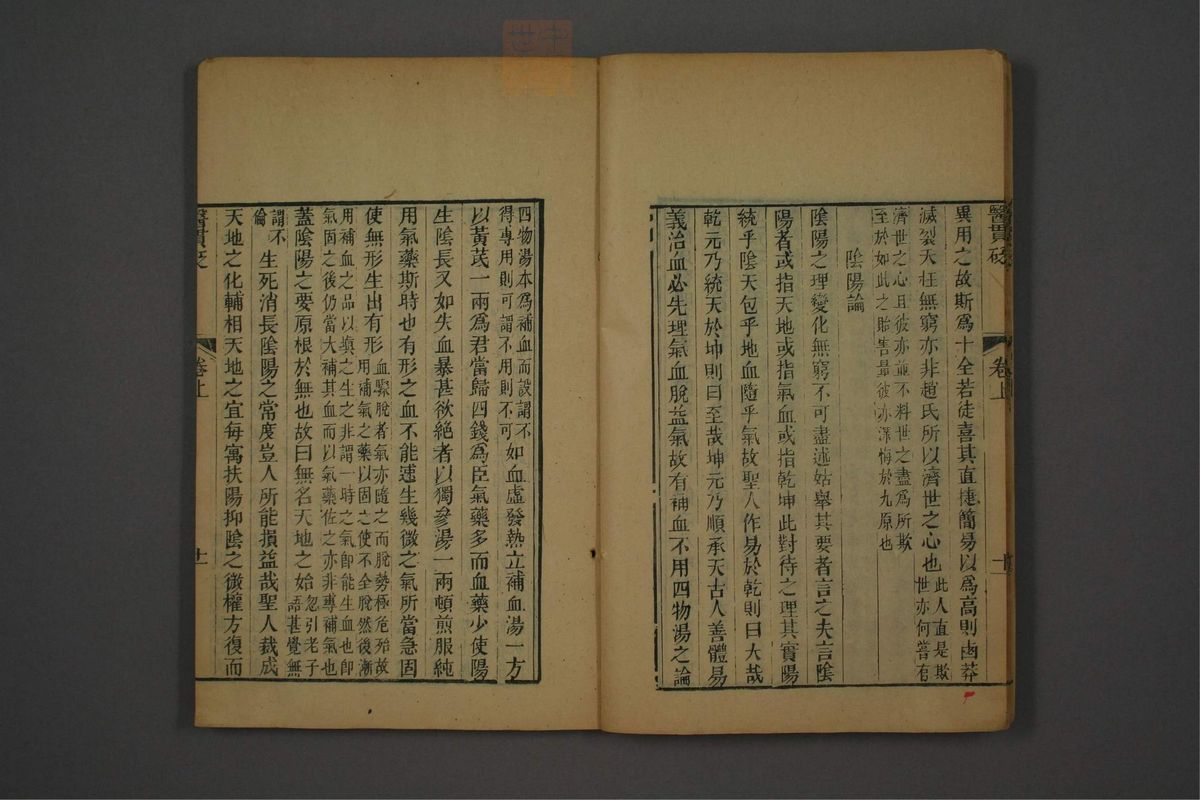 醫貫砭
卷上
異用之故斯爲十全若徒喜其直捷簡易以爲高則鹵莽
滅裂夭枉無窮亦非趙氏所以濟世之心也此人直是欺
世亦何嘗有
濟世之心且彼亦並不料世之盡爲所欺
至於如此之貽害量彼亦深悔於九原也
陰陽論
陰陽之理變化無窮不可盡述姑舉其要者言之夫言陰
陽者或指天地或指氣血或指乾坤此對待之理其實陽
統乎陰天包乎地血隨乎氣故聖人作易於乾則曰大哉
乾元乃統天於坤則曰至哉坤元乃順承天古人善體易
義治血必先理氣血脫益氣故有補血不用四物湯之論
四物湯本爲補血而設謂不
得專用則可謂不用則不可如血虛發熱立補血湯一方
以黃芪一兩爲君當歸四錢爲臣氣藥多而血藥少使陽
生陰長又如失血暴甚欲絕者以獨參湯一兩頓煎服純
用氣藥斯時也有形之血不能速生幾微之氣所當急固
使無形生出有形血驟脫者氣亦隨之而脫勢極危殆故
用補氣之藥以固之使不全脫然後漸
用補血之品以填之生之非謂一時之氣卽能生血也卽
氣固之後仍當大補其血而以氣藥佐之亦非專補氣也
蓋陰陽之要原根於無也故曰無名天地之始忽引老子
語甚覺無
謂不
倫生死消長陰陽之常度豈人所能損益哉聖人裁成
天地之化輔相天地之宜每寓扶陽抑陰之微權方復而
醫貫砭
卷上